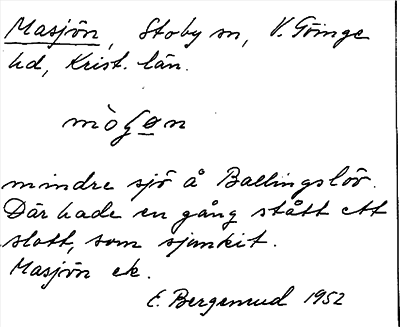 Masjön, Stoby sn, V. Göinge
hd, Krist. län.
mindre sjö å Ballingslöv.
Där hade en gång stått ett
slott, som sjunkit.
Masjön ek.
E. Bergenrud 1952